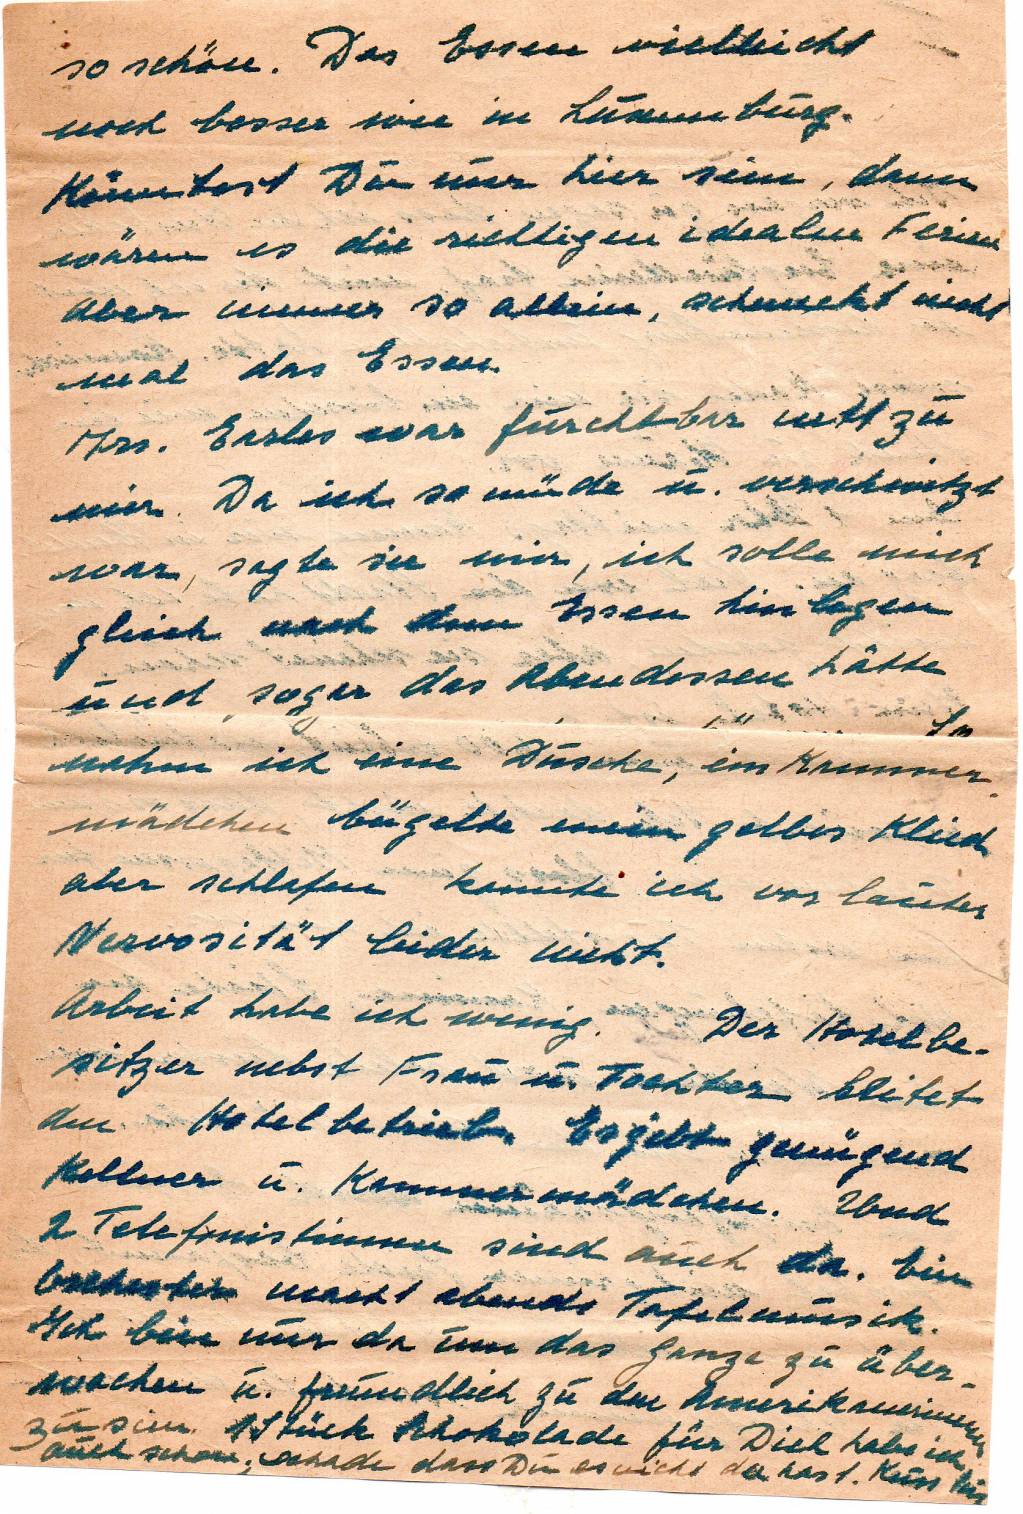 so schön. Das Essen vielleicht
noch besser wie in Luxemburg.
Könntest Du nur hier sein, dann
wären es die richtigen idealen Ferien
aber immer so allein, schmeckt nicht
mal das Essen.
Mrs. Earles war furchtbar nett zu
mir. Da ich so müde u. verschwitzt
war, sagte sie mir, ich solle mich
gleich nach dem Essen hinlegen
und sogar das Abendessen hätte
nahm ich eine Dusche, ein Kammer-
mädchen bügelte mein gelbes Kleid
aber schlafen konnte ich vor lauter
Nervosität leider nicht.
Arbeit habe ich wenig. Der Hotelbe-
sitzer nebst Frau u. Tochter leitet
den Hotelbetrieb. Es gibt genügend
Kellner u. Kammermädchen. Und
2 Telefonistinnen sind auch da. Ein
Orchester macht abends Tafelmusik.
Ich bin nur da um das Ganze zu über-
wachen u. freundlich zu den Amerikanerinnen
zu sein. 1 Stück Schokolade für Dich habe ich
auch schon, schade dass Du es nicht da hast. Kuss